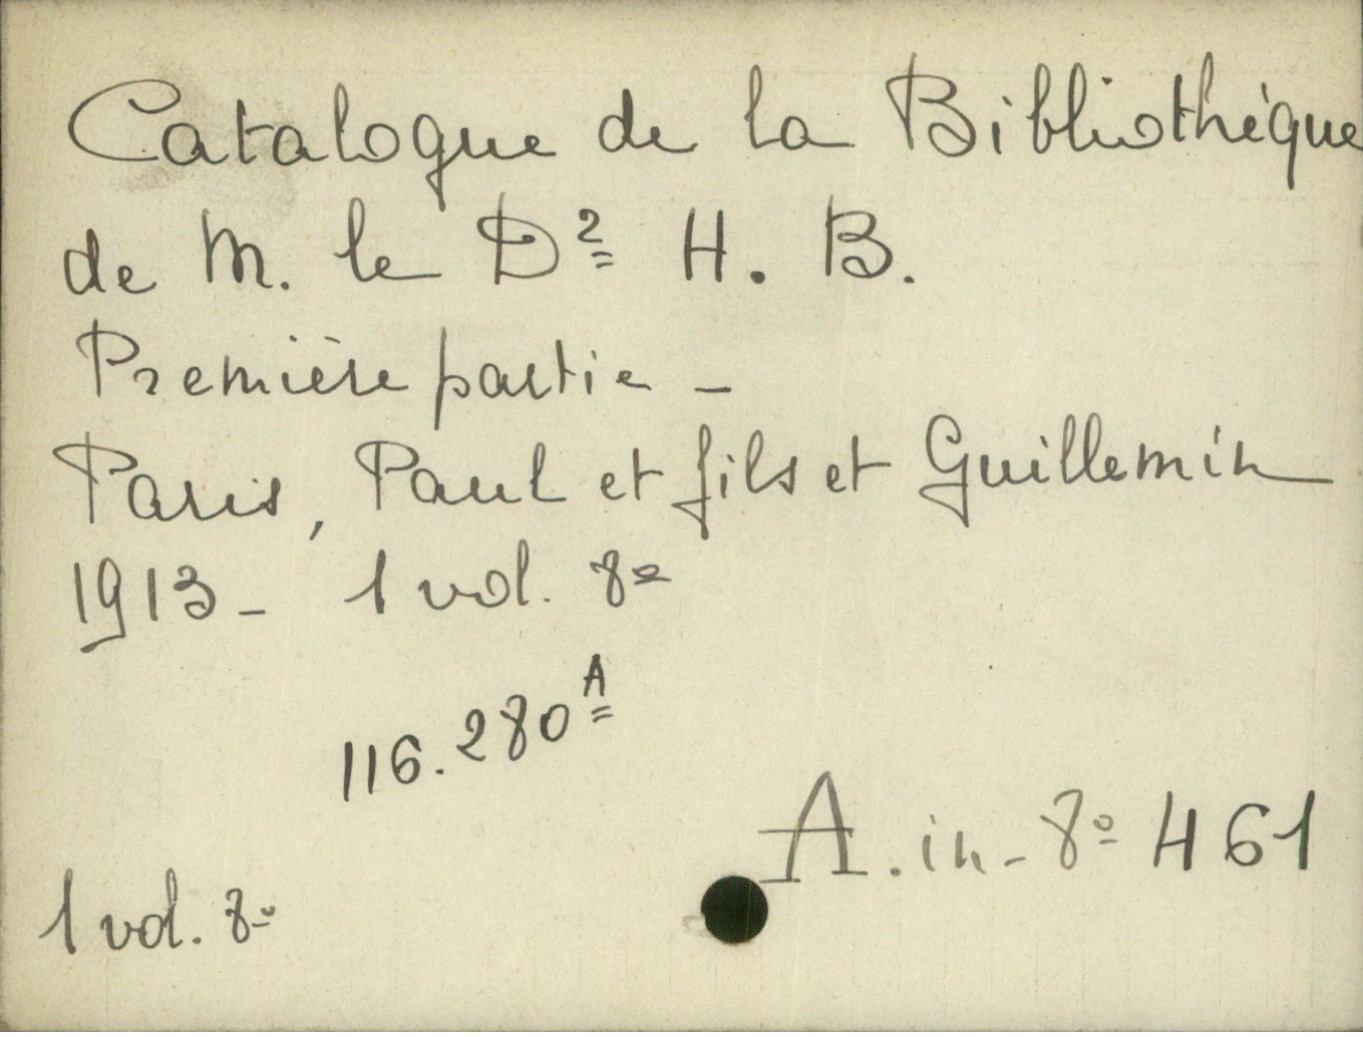 Catalogue de la Bibliothèque
de M. le Dr H. B.
Première partie -
Paris, Paul et fils et Guillemin
1913 - 1 vol. 8o
116.280 A
A. in-8o H 61
1 vol. 8o